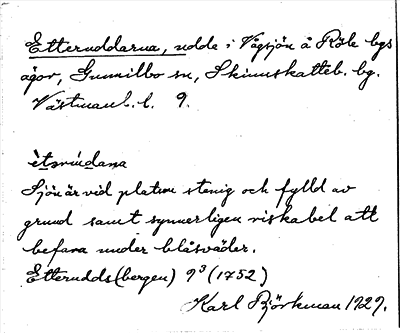 Etteruddarna, udde i Vågsjön å Röle bys
ägor, Gunnilbo sn, Skinnskatteb. bg.
Västmanl. l. 9.
ètərùdana
Sjön är vid platsen stenig och fylld av
grund samt synnerligen riskabel att
befara under blåsväder.
Etterudds(bergen) 9³ (1752)
Karl Björkman 1929.